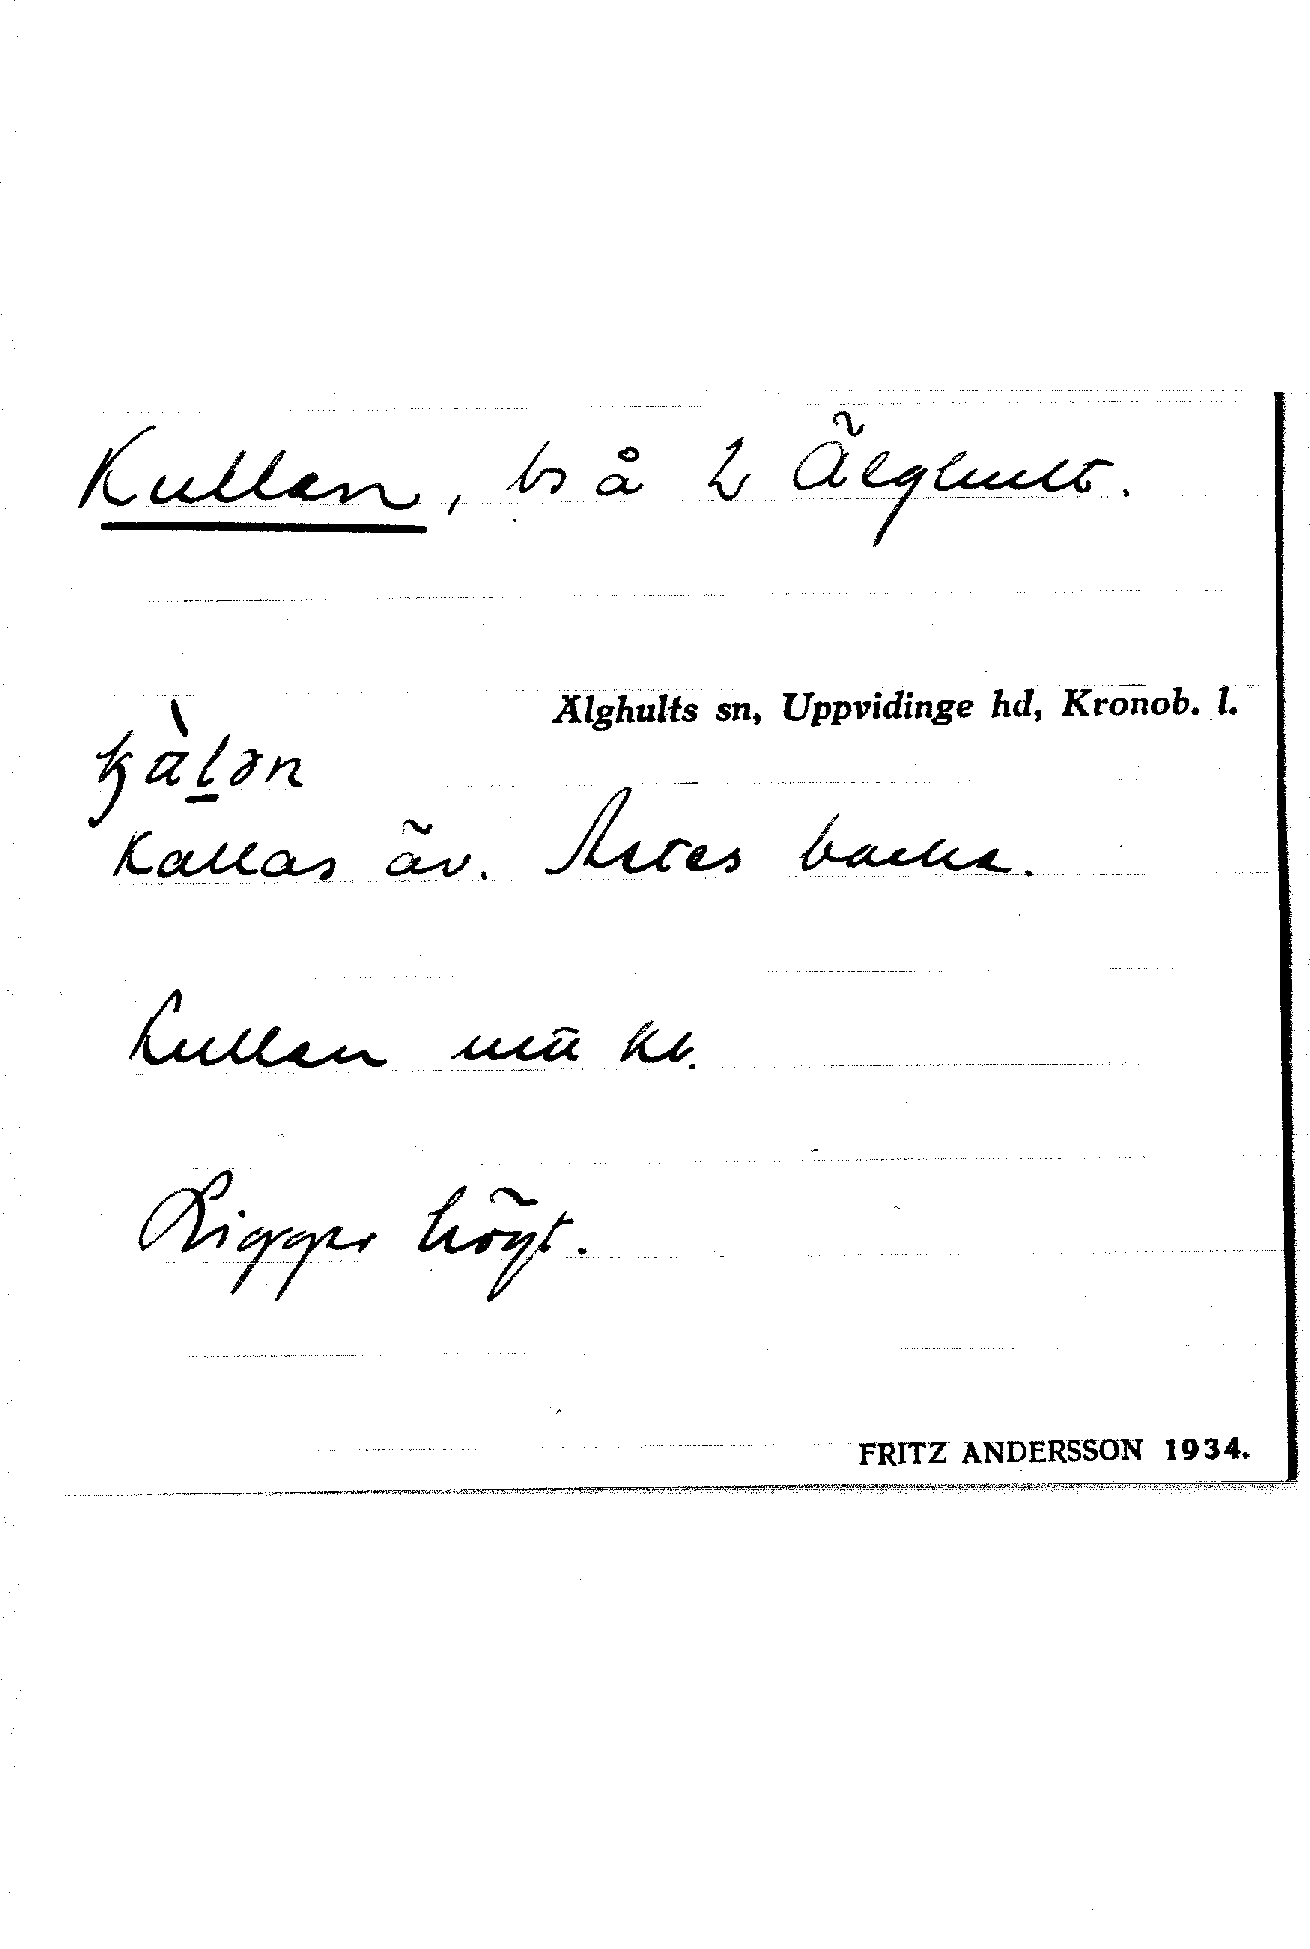 Kullan, bs å 2 Älghult.
Älghults sn, Uppvidinge hd, Kronob. l.
Kallas äv. backe.
Kullan kb.
Ligger högt.
FRITZ ANDERSSON 1934.